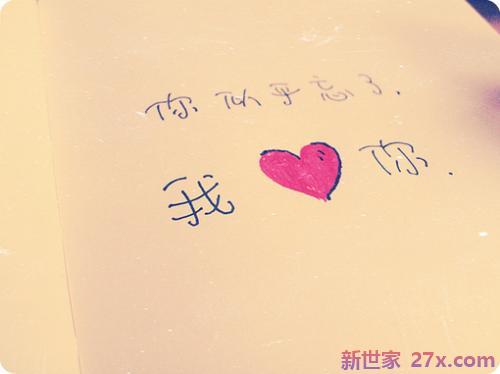 你似乎忘了.
我 你.
新世家 27x.com